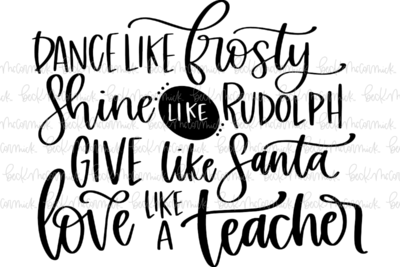 DANCE LIKE frosty
Shine LIKE RUDOLPH
GIVE like Santa
love LIKE A teacher